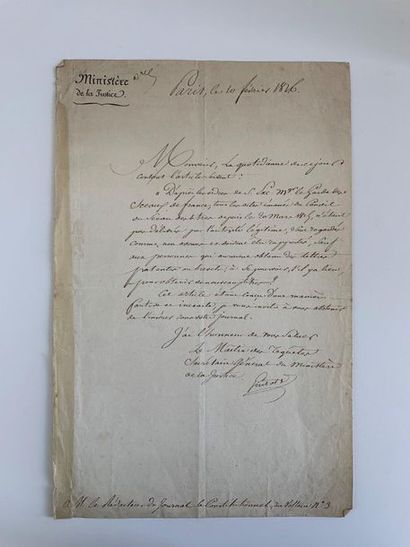 Ministère
de la Justice.
Paris, le 10 février 1816.
Monsieur, La quotidienne de ce jour
contient l'article suivant:
« D'après les ordres de S. Exc. Mgr le Garde des
Sceaux de france, tous les actes émanés du Conseil
du Sceau des titres depuis le 20 mars 1815, n'étant
pas délivrés par l'autorité légitime,
comme non avenus
aux personnes qui auraient obtenu des lettres
patentes ou brevets, à se pourvoir, s'il y a lieu,
pour obtenir
Cet article étant conçu d'une manière
fautive et inexacte, je vous invite à vous abstenir
de l'insérer dans votre journal.
J'ai l'honneur de vous saluer
Le Maître des requêtes
Secrétaire Général du Ministère
de la Justice.
Guizot
A M. le Rédacteur du Journal le Constitutionnel, N° 3